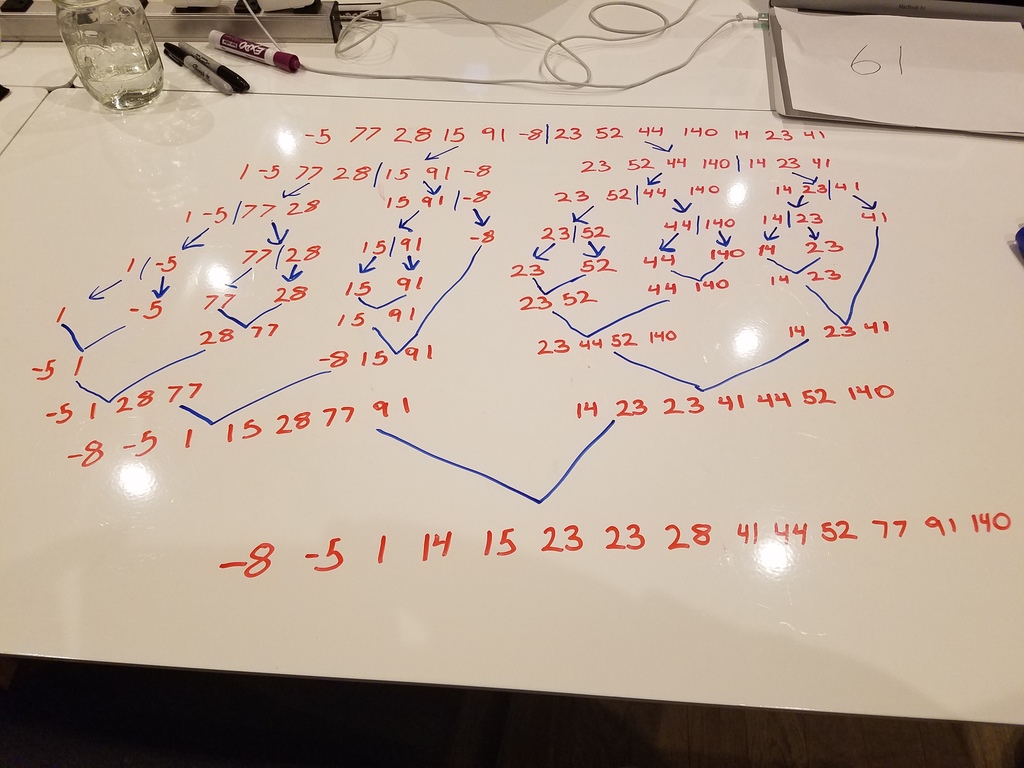 MacBook Air
EXPO
61
-5 77 28 15 91 -8|23 52 44 140 14 23 41
1 -5 77 28|15 91 -8
23 52 44 140|14 23 41
1 -5|77 28
15 91|-8
23 52|44 140
14 23|41
1|-5
77|28
15|91
-8
23|52
44|140
14|23
41
1
-5
77
28
15
91
23
52
44
140
14
23
28 77
15 91
23 52
44 140
14 23
-5 1
-8 15 91
23 44 52 140
14 23 41
-5 1 28 77
-8 -5 1 15 28 77 91
14 23 23 41 44 52 140
-8 -5 1 14 15 23 23 28 41 44 52 77 91 140